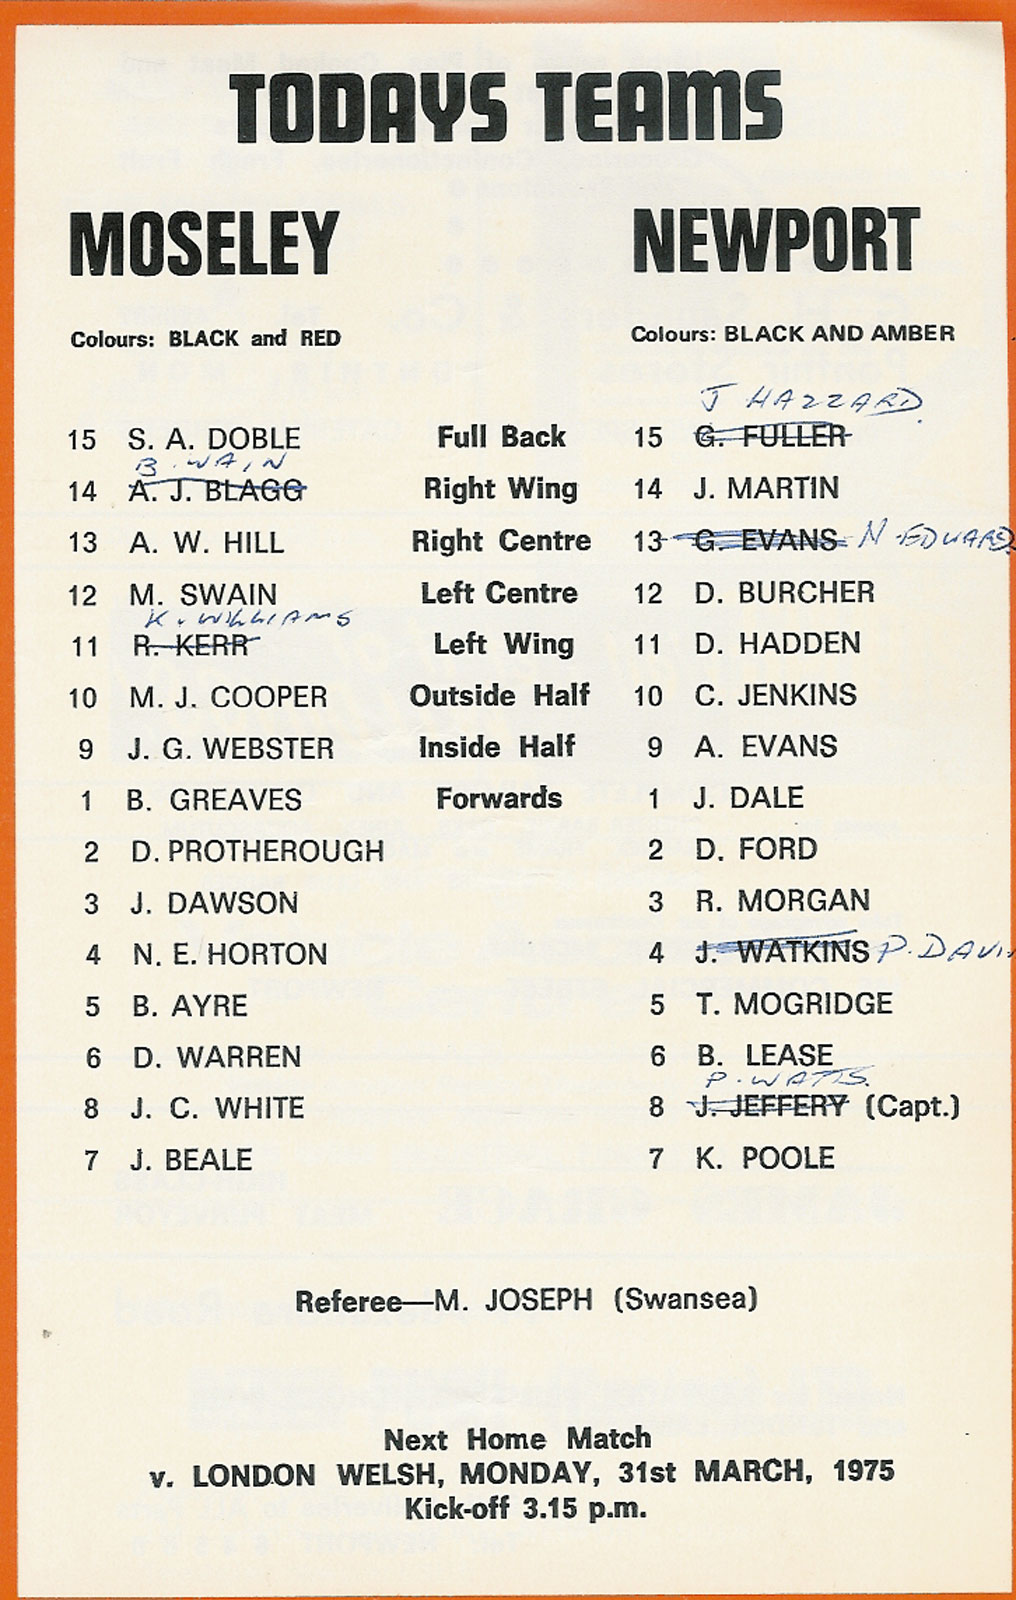 TODAYS TEAMS
MOSELEY NEWPORT
Colours: BLACK and RED Colours: BLACK AND AMBER
J HAZZARD
15 S. A. DOBLE Full Back 15 G. FULLER
B. WAIN
14 A. J. BLAGG Right Wing 14 J. MARTIN
13 A. W. HILL Right Centre 13 G. EVANS N. EDWARDS
12 M. SWAIN Left Centre 12 D. BURCHER
K. WILLIAMS
11 R. KERR Left Wing 11 D. HADDEN
10 M. J. COOPER Outside Half 10 C. JENKINS
9 J. G. WEBSTER Inside Half 9 A. EVANS
1 B. GREAVES Forwards 1 J. DALE
2 D. PROTHEROUGH 2 D. FORD
3 J. DAWSON 3 R. MORGAN
4 N. E. HORTON 4 J. WATKINS P. DAVI
5 B. AYRE 5 T. MOGRIDGE
6 D. WARREN 6 B. LEASE
P. WATTS
8 J. C. WHITE 8 J. JEFFERY (Capt.)
7 J. BEALE 7 K. POOLE
Referee—M. JOSEPH (Swansea)
Next Home Match
v. LONDON WELSH, MONDAY, 31st MARCH, 1975
Kick-off 3.15 p.m.